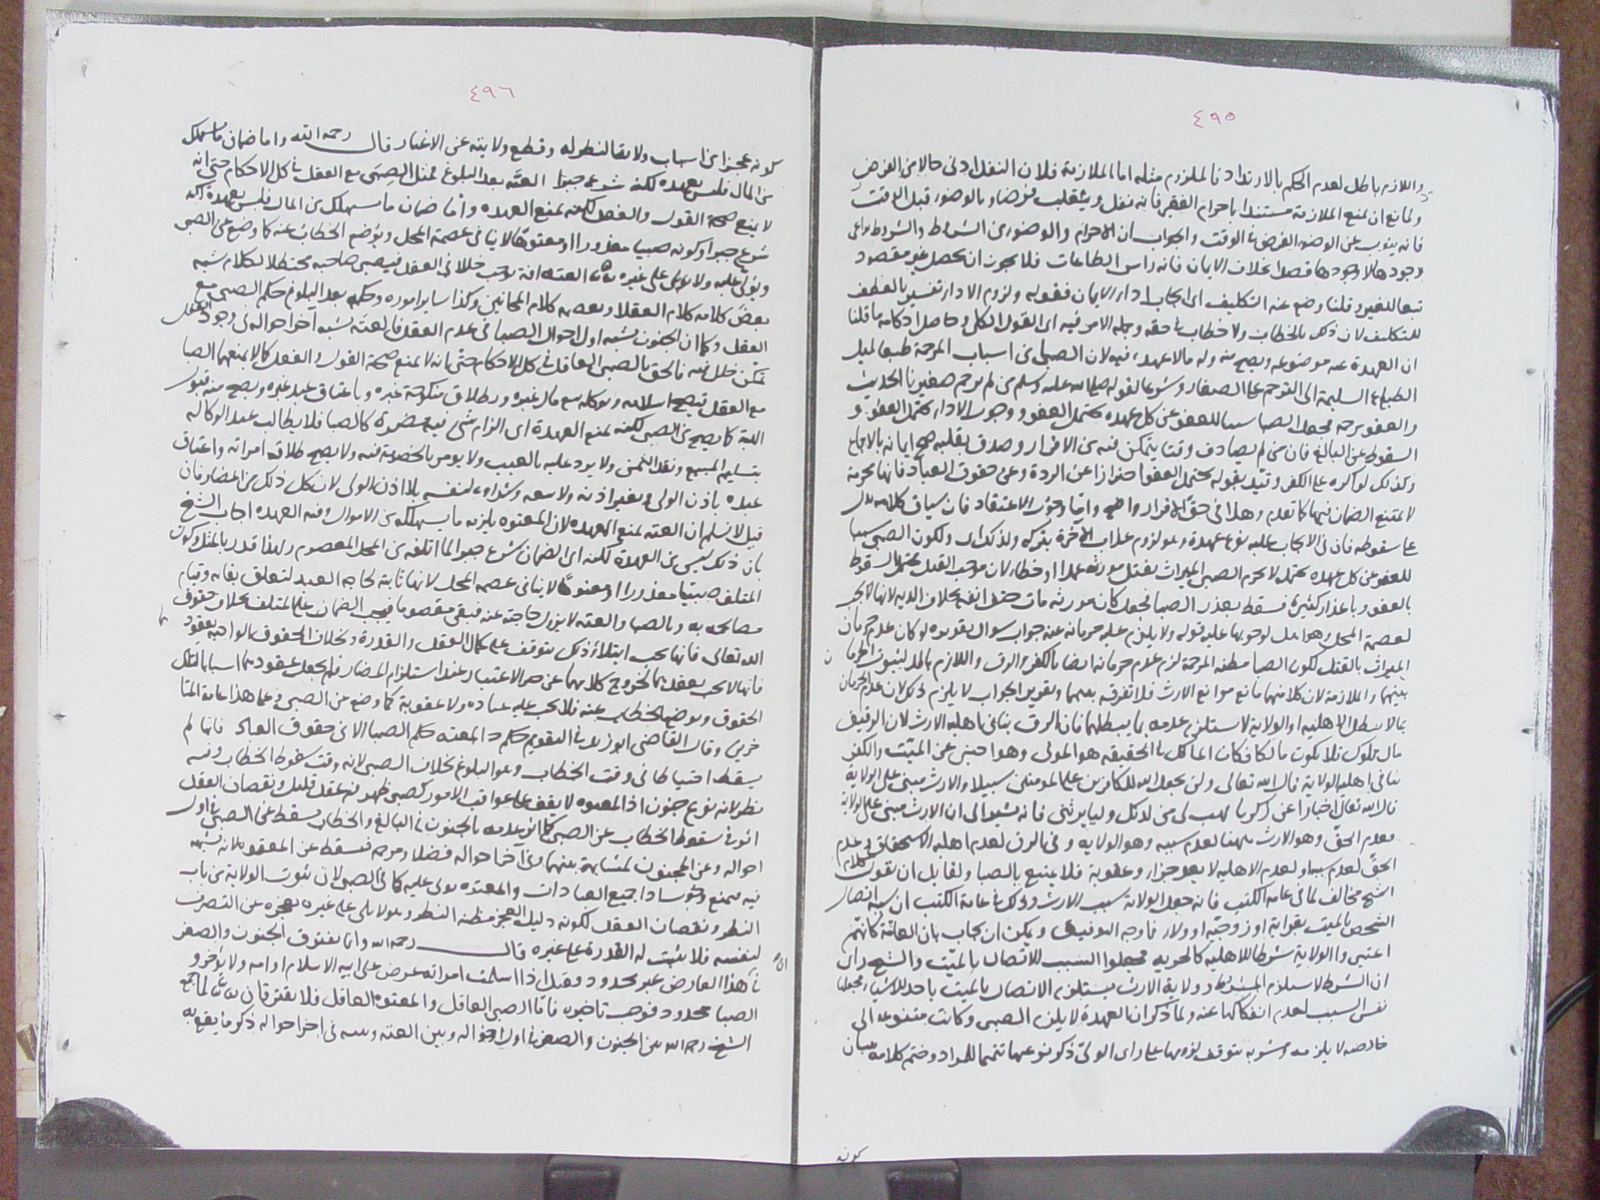 ٤٩٥
واللازم باطل لعدم الحكم بالارتداد فالملزوم مثله اما الملازمة فلان النفل ادنى حالا من الفرض
ولمانع ان يمنع الملازمة مستندا باحرام الفقير فانه نفل وينقلب فرضا وبالوضوء قبل الوقت
فانه ينوب عن الوضوء الفرض في الوقت والجواب ان الاحرام والوضوء من الشروط والشروط يراعى
وجودها لا وجودها قصدا بخلاف الايمان فانه راس الطاعات فلا يجوز ان يحصل غير مقصود
تبعا للغير وقلنا وضع عنه التكليف اى ايجاب اداء الايمان فقوله ولزوم الاداء تفسير بالعطف
للتكليف لان ذلك بالخطاب ولا خطاب في حقه وجملة الامر فيه اى القول الكلى وحاصل احكامه ما قلنا
ان العهدة عنه موضوعه ويصح منه وله ما لا عهدة فيه لان الصبا من اسباب المرحمة طبعا لميل
الطباع السليمة الى الترحم على الصغار وشرعا لقوله صلى الله عليه وسلم من لم يرحم صغيرنا الحديث
والعفو مرحمة فجعل الصبا سببا للعفو عن كل عهدة تحتمل العفو ووجوب الاداء تحتمل العفو و
السقوط عن البالغ فان من لم يصادف وقتا يتمكن فيه من الاقرار وصدق بقلبه صح ايمانه بالاجماع
وكذلك لو اكره على الكفر وقيد بقوله يحتمل العفو احترازا عن الردة وعن حقوق العباد فانها محرمة
لا تمنع الضمان فيها كما تقدم وهذا في حق الاقرار واضح واما وجوب الاعتقاد فان سياق كلامه يدل
على سقوطه فان في الايجاب عليه نوع عهدة وهو لزوم عذاب الآخرة بتركه ولذلك اى ولكون الصبى سببا
للعفو عن كل عهدة يحتمل لا يحرم الصبى الميراث بقتل مورثه عمدا او خطا لان موجب القتل يحتمل السقوط
بالعفو وباعذار كثيرة فسقط بعذر الصبا فجعل كان مورثه مات حتف انفه بخلاف الدية لانها تجب
لعصمة المحل وهو اهل لوجوبها عليه قوله ولا يلزم عليه حرمانه عنه جواب سوال تقريره لو كان عدم حرمان
الميراث بالقتل لكون الصبا مظنة المرحمة لزم عدم حرمانه ايضا بالكفر والرق واللازم باطل لثبوت الحرمان
بينهما والملازمة لان كلا منهما مانع من موانع الارث فلا تفرقة بينهما وتقرير الجواب لا يلزم ذلك لان عدم الحرمان
بما لا يبطل الاهلية او الولاية لا يستلزم عدمه بما يبطلهما فان الرق ينافى اهلية الارث لان الرقيق
مال مملوك فلا يكون مالكا فكان المالك في الحقيقة هو المولى وهو اجنبى عن الميت والكفر
ينافى اهلية الولاية قال الله تعالى ولن يجعل الله للكافرين على المومنين سبيلا والارث مبنى على الولاية
قال الله تعالى اخبارا عن زكريا فهب لى من لدنك وليا يرثنى فانه يشير الى ان الارث مبنى على الولاية
فعدم الحق وهو الارث ههنا لعدم سببه وهو الولاية وفي الرق لعدم اهلية الاستحقاق وعدم
الحق لعدم سببه او لعدم الاهلية لا يعد جزاء وعقوبة فلا يمتنع بالصبا ولقايل ان يقول كلام
الشيخ مخالف لما في عامة الكتب فانه جعل الولاية سبب الارث وذلك في عامة الكتب ان سببه اتصال
الشخص بالميت بقرابة او زوجية او ولاء فما وجه التوفيق ويمكن ان يجاب بان العامة كانهم
اعتبروا الولاية شرطا للاهلية كالحرية فجعلوا السبب للاتصال بالميت والشيخ راى
ان الشرط لاستلزم المشروط وولاية الارث يستلزم الاتصال بالميت باحد الاشياء فجعلها
نفس السبب لعدم انفكاكها عنه ولما ذكر ان العهدة لا يلزم الصبى وكانت متنوعة الى
خالصة لا يلزمه ومشوبة يتوقف لزومها على راى الولى ذكر نوعيها تتميما للمراد وختم كلامه ببيان
كونه
٤٩٦
كونه عجزا من اسباب ولاية النظر له وقطع ولايته عن الاغيار قال رحمه الله واما ضمان ما يستهلك
من المال فليس بعهدة لكنه شرع جبرا العته بعد البلوغ فمثل الصبى مع العقل في كل الاحكام حتى انه
لا يمنع صحة القول والفعل لكنه يمنع العهدة واما ضمان ما يستهلك من المال فليس بعهدة لكنه
شرع جبرا وكونه صبيا معذورا او معتوها لا ينافى عصمة المحل ويوضع الخطاب عنه كما وضع عن الصبى
ويولى عليه ولا يولى على غيره العته آفة يوجب خللا في العقل فيصير صاحبه مختلط الكلام يشبه
بعض كلامه كلام العقلاء وبعضه كلام المجانين وكذا سائر اموره وحكمه بعد البلوغ حكم الصبى مع
العقل وكما ان الجنون يشبه اول احوال الصبا في عدم العقل فالعته يشبه آخر احواله في وجود العقل
تمكن خلل فيه فالحق بالصبى العاقل في كل الاحكام حتى انه لا يمنع صحة القول والفعل كما لا يمنعها الصبا
مع العقل فيصح اسلامه وتوكله ببيع مال غيره وبطلاق منكوحة غيره وباعتاق عبد غيره ويصح منه قبول
الهبة كما يصح من الصبى لكنه يمنع العهدة اى الزام شى فيه مضرة كالصبا فلا يطالب عند الوكالة
بتسليم المبيع ونقد الثمن ولا يرد عليه بالعيب ولا يومر بالخصومة فيه ولا يصح طلاقه امراته واعتاق
عبده باذن الولى وبغير اذنه ولا بيعه وشراؤه لنفسه بلا اذن الولى لان كل ذلك من المضار فان
قيل لا نسلم ان العته يمنع العهدة لان المعتوه يلزمه ما يستهلكه من الاموال وفيه العهدة اجاب الشيخ
بان ذلك ليس من العهدة لكنه اى الضمان شرع جبرا لما اتلفه من المحل المعصوم ولهذا قدر بالمثل وكون
المتلف صبيا معذورا او معتوها لا ينافى عصمة المحل لانها ثابتة لحاجة العبد لتعلق بقائه وقيام
مصالحه به وبالصبا والعته لا يزول حاجته عنه فبقى معصوما فيجب الضمان على المتلف بخلاف حقوق
الله تعالى فانها تجب ابتلاء وذلك يتوقف على كمال العقل والقدرة وبخلاف الحقوق الواجبة بعقود
فانها لا تجب بعقدهما لخروج كلامهما عن حيز الاعتبار عند استلزام المضار فلم يجعل عقودهما اسبابا لتلك
الحقوق ويوضع الخطاب عنه فلا يجب عليه عبادة ولا عقوبة كما وضع عن الصبى وعلى هذا عامة المتا
خرين وقال القاضى ابو زيد في التقويم حكم المعته حكم الصبا الا في حقوق العبادات فانها لم
يسقط احتياطا في وقت الخطاب وهو البلوغ بخلاف الصبى لانه وقت سقوط الخطاب وفيه
نظر لانه نوع جنون اذ المعتوه لا يقف على عواقب الامور كصبى ظهر فيه عقل قليل ونقصان العقل
اثر في سقوط الخطاب عن الصبى كما اثر عدمه بالجنون في البالغ والخطاب يسقط عن الصبى في اول
احواله وعن المجنون لمشابهة بينهما وفي آخر احواله فضلا ومرحمة فسقط عن المعتوه لانه يشبهه
فيه فيمنع وجوب اداء جميع العبادات والمعتوه يولى عليه كما في الصبى لان ثبوت الولاية من باب
النظر ونقصان العقل لكونه دليل العجز مظنة النظر ولا يلى على غيره لعجزه عن التصرف
لنفسه فلا يثبت له القدرة على غيره قال رحمه الله وانما يفترق الجنون والصغر
في ان هذا العارض غير محدود فقيل اذا اسلمت امراته عرض على ابيه الاسلام او امه ولا يؤخر و
الصبا محدود فوجب تاخيره فاما الصبى العاقل والمعتوه العاقل فلا يفترقان لما جمع
الشيخ رحمه الله بين الجنون والصغر في اول احواله وبين العته وبينه في آخر احواله ذكر ما يقع به